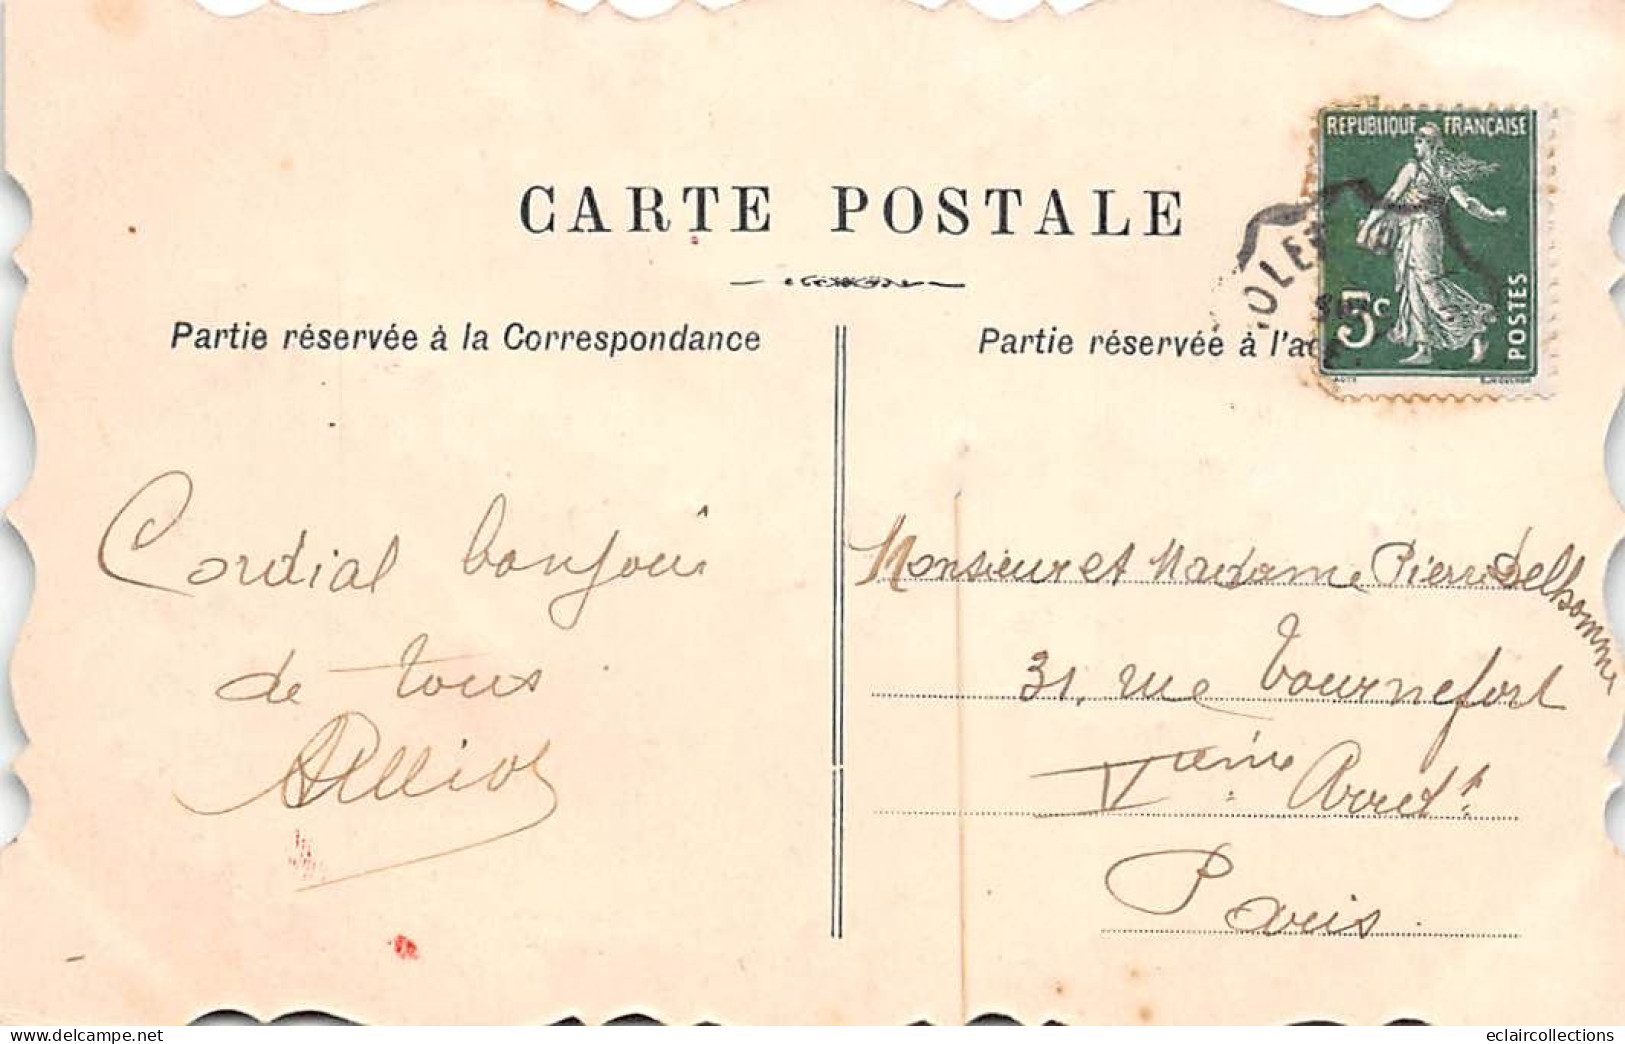 CARTE POSTALE
Partie réservée à la Correspondance
Partie réservée à l'a
RÉPUBLIQUE FRANÇAISE
5c
POSTES
OLE
Cordial bonjour
de tous
Monsieur et Madame Pierre Delhomme
31, rue Tournefort
Vème Arrdt
Paris.
delcampe.net
eclaircollections